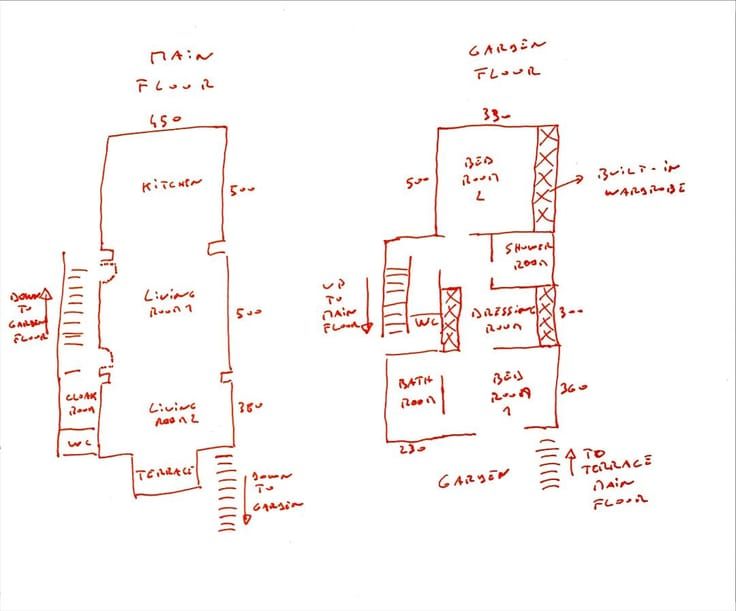 MAIN
FLOOR
450
KITCHEN
500
LIVING
ROOM 1
500
DOWN
TO
GARDEN
FLOOR
CLOAK
ROOM
LIVING
ROOM 2
WC
TERRACE
DOWN
TO
GARDEN
GARDEN
FLOOR
BED
ROOM
2
500
BUILT-IN
WARDROBE
SHOWER
ROOM
UP
TO
MAIN
FLOOR
WC
DRESSING
ROOM
300
BATH
ROOM
BED
ROOM
1
360
230
GARDEN
TO
TERRACE
MAIN
FLOOR